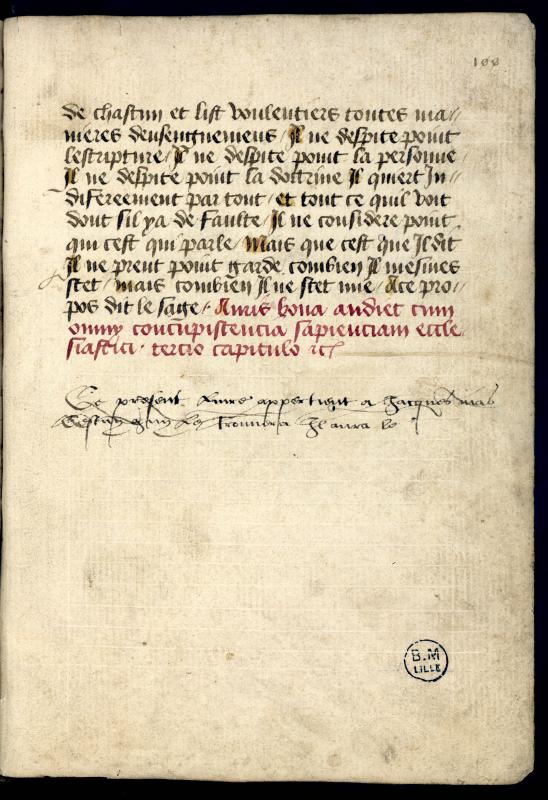 188
de chascun et list voulentiers toutes ma//
nieres denseignemens / Il ne despite point
lescripture / Il ne despite point la personne
Il ne despite point la doctrine Il quiert In//
differeement par tout / et tout ce quil voit
dont sil ya de faulte / Il ne considere point
qui cest qui parle / Mais que cest que Il dit
Il ne prent point garde combien Il mesmes
scet / mais combien Il ne scet mie / Ace pro//
pos dit le sage / Auris bona audiet cum
omny concupiscencia sapienciam eccle
siastici · tercio capitulo
Ce present livre appertient a Jacques
trouvera Il aura
B.M
LILLE